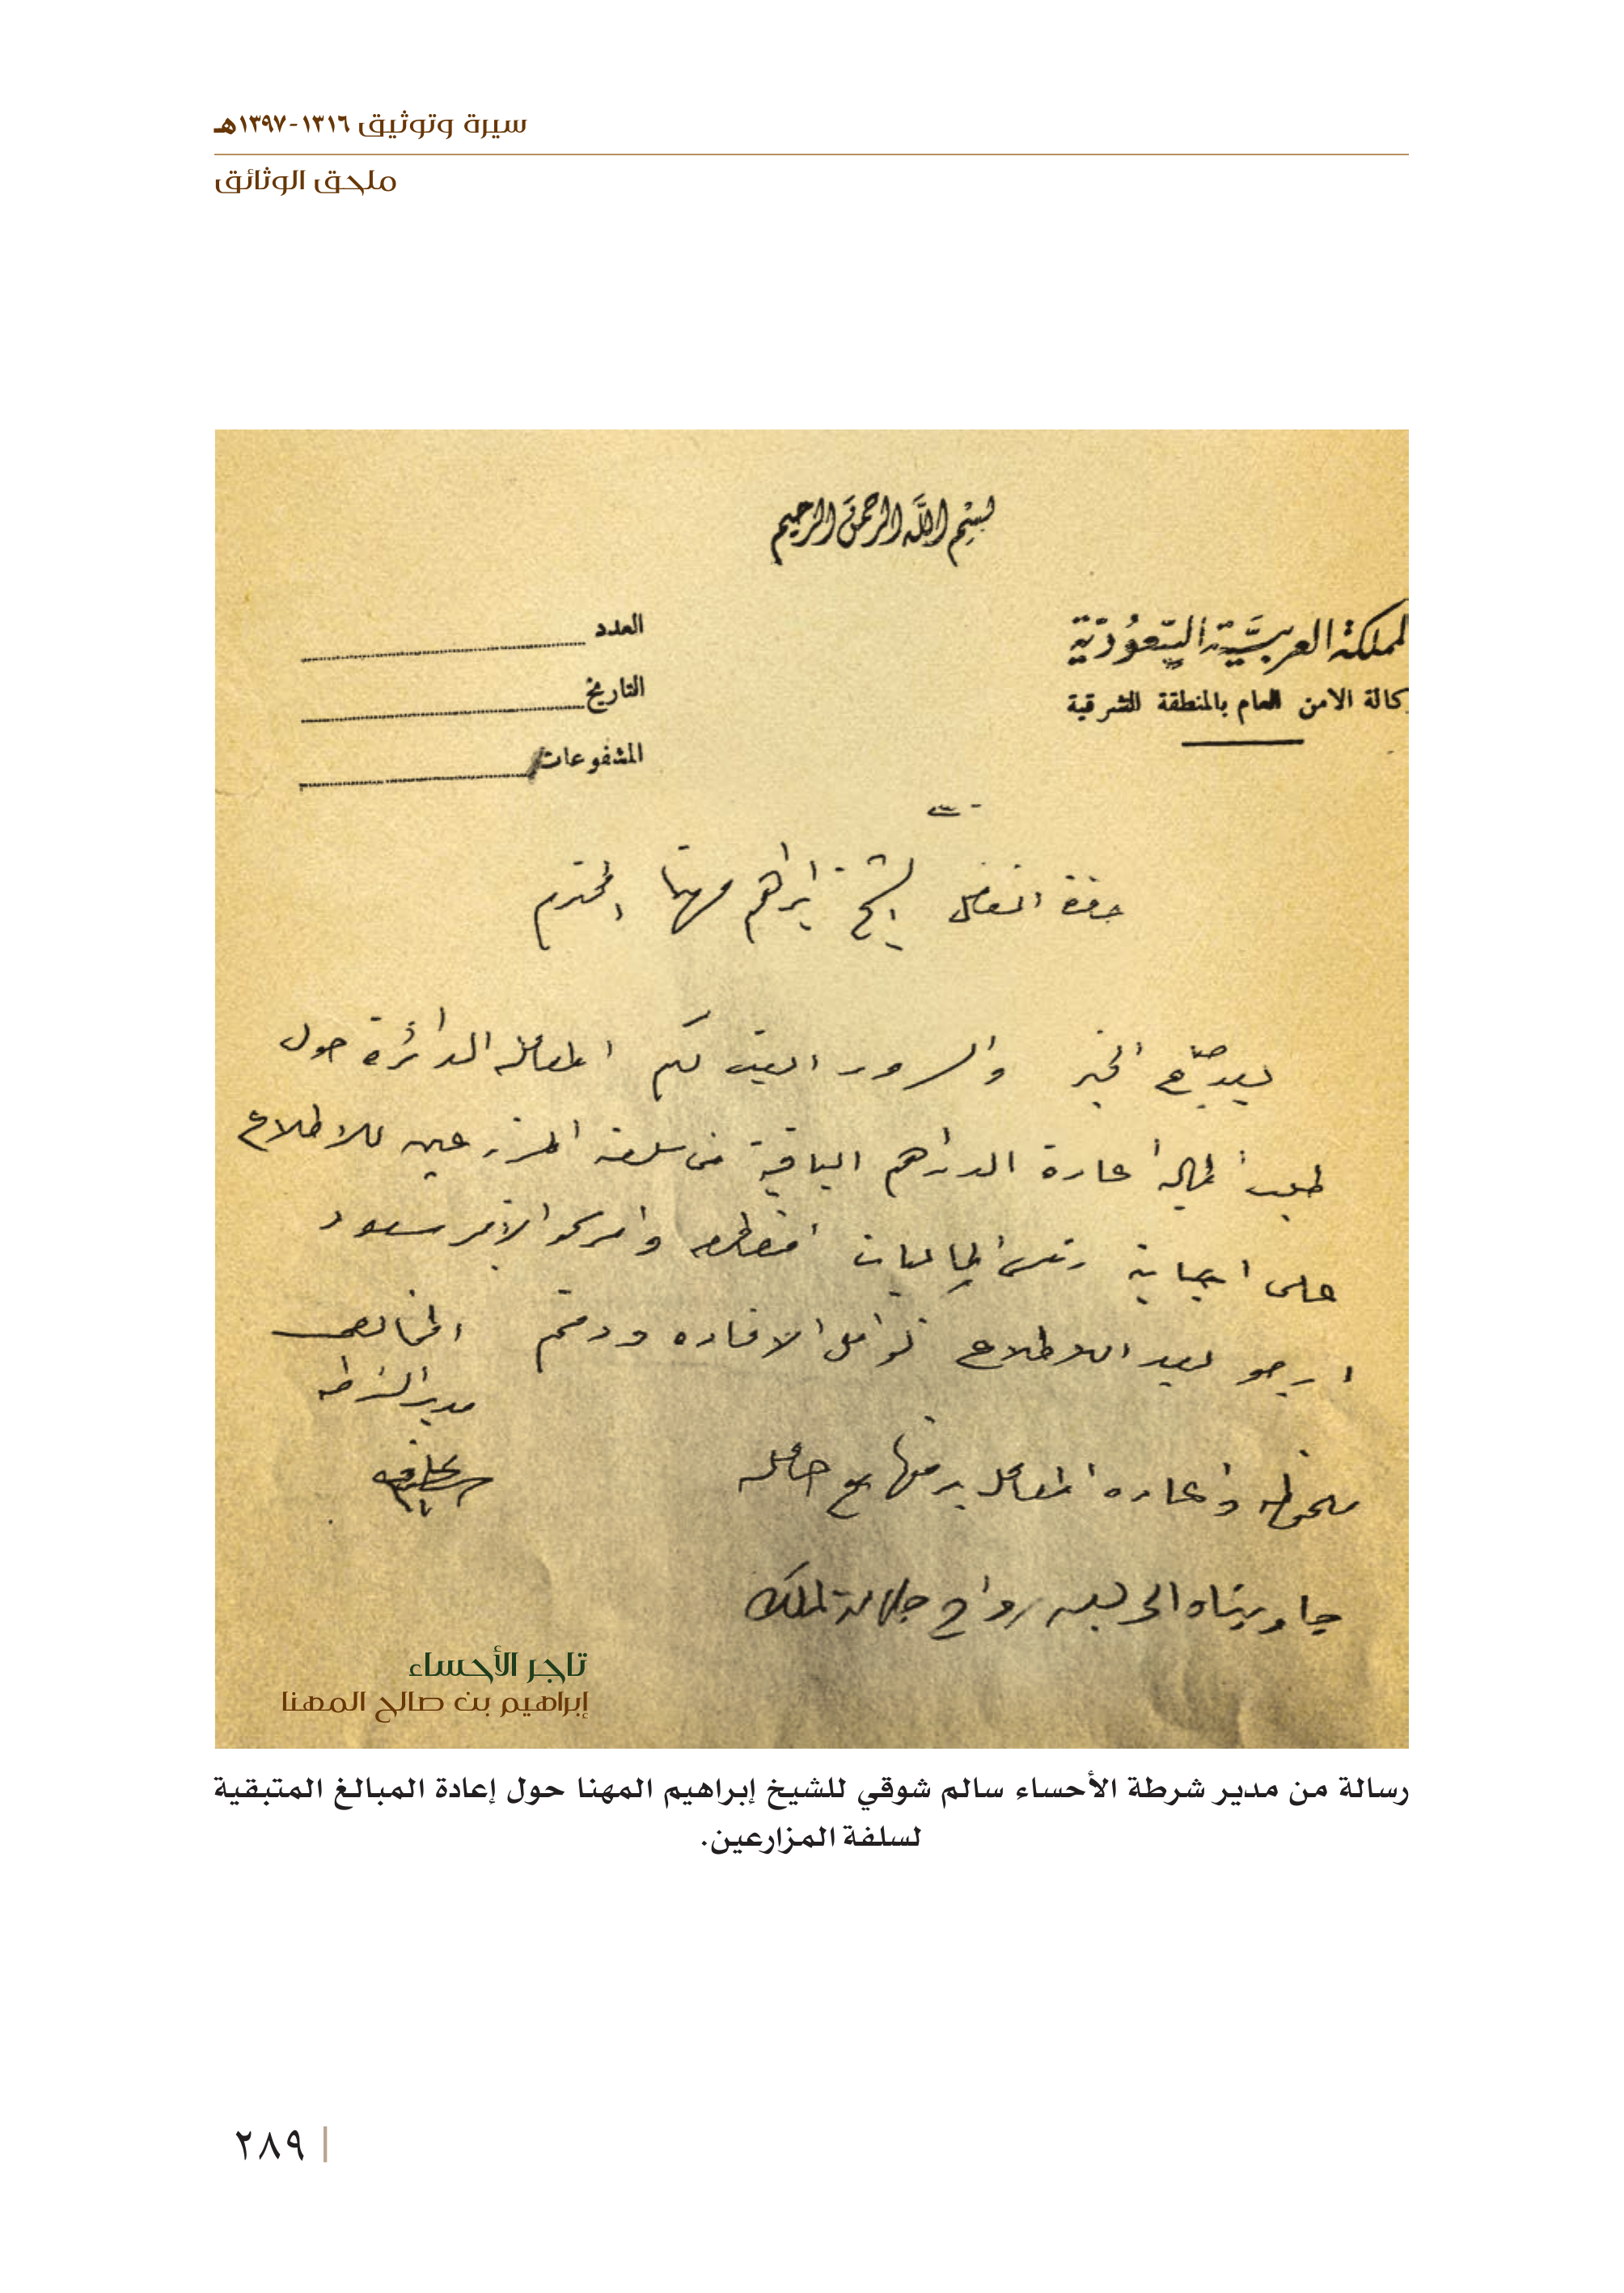 سيرة وتوثيق ١٣١٦-١٣٩٧هـ
ملحق الوثائق
بسم الله الرحمن الرحيم
لمملكة العربية السعودية
كالة الامن العام بالمنطقة الشرقية
العدد
التاريخ
المشفوعات
حضرة الفاضل الشيخ ابراهيم مهنا المحترم
بعد صباح الخير والسرور اليت لكم المعامله الدائرة حول
طلب الماليه اعادة الدراهم الباقية من سلفة المزارعين للاطلاع
على اجابة رئيس الماليات وامر سمو الامير سعود
ارجو بعد الاطلاع الافاده ودمتم المخلص
مدير الشرطه
ملحوظه واعاده المعامله برفقها مع حامله
الى بعد رواح جلالة الملك
تاجر الأحساء
إبراهيم بن صالح المهنا
رسالة من مدير شرطة الأحساء سالم شوقي للشيخ إبراهيم المهنا حول إعادة المبالغ المتبقية
لسلفة المزارعين.
٢٨٩